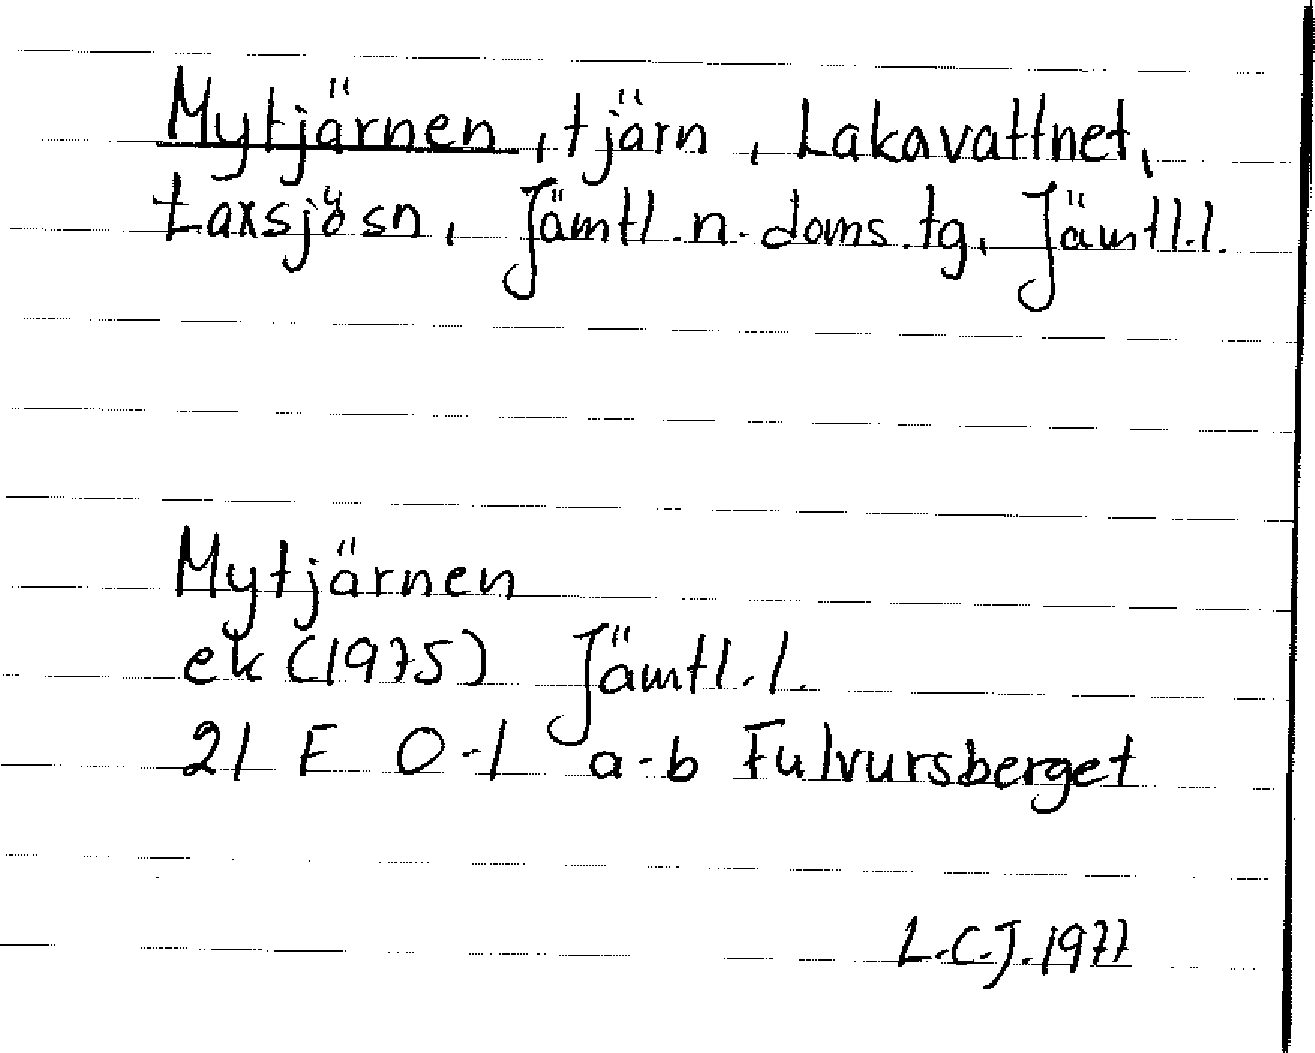 Mytjärnen, tjärn, Lakavattnet,
Laxsjö sn, Jämtl. n. doms. tg, Jämtl.l.
Mytjärnen
ek (1975) Jämtl. l.
21 E 0-1 a-b Fulvursberget
L.C.J. 1977